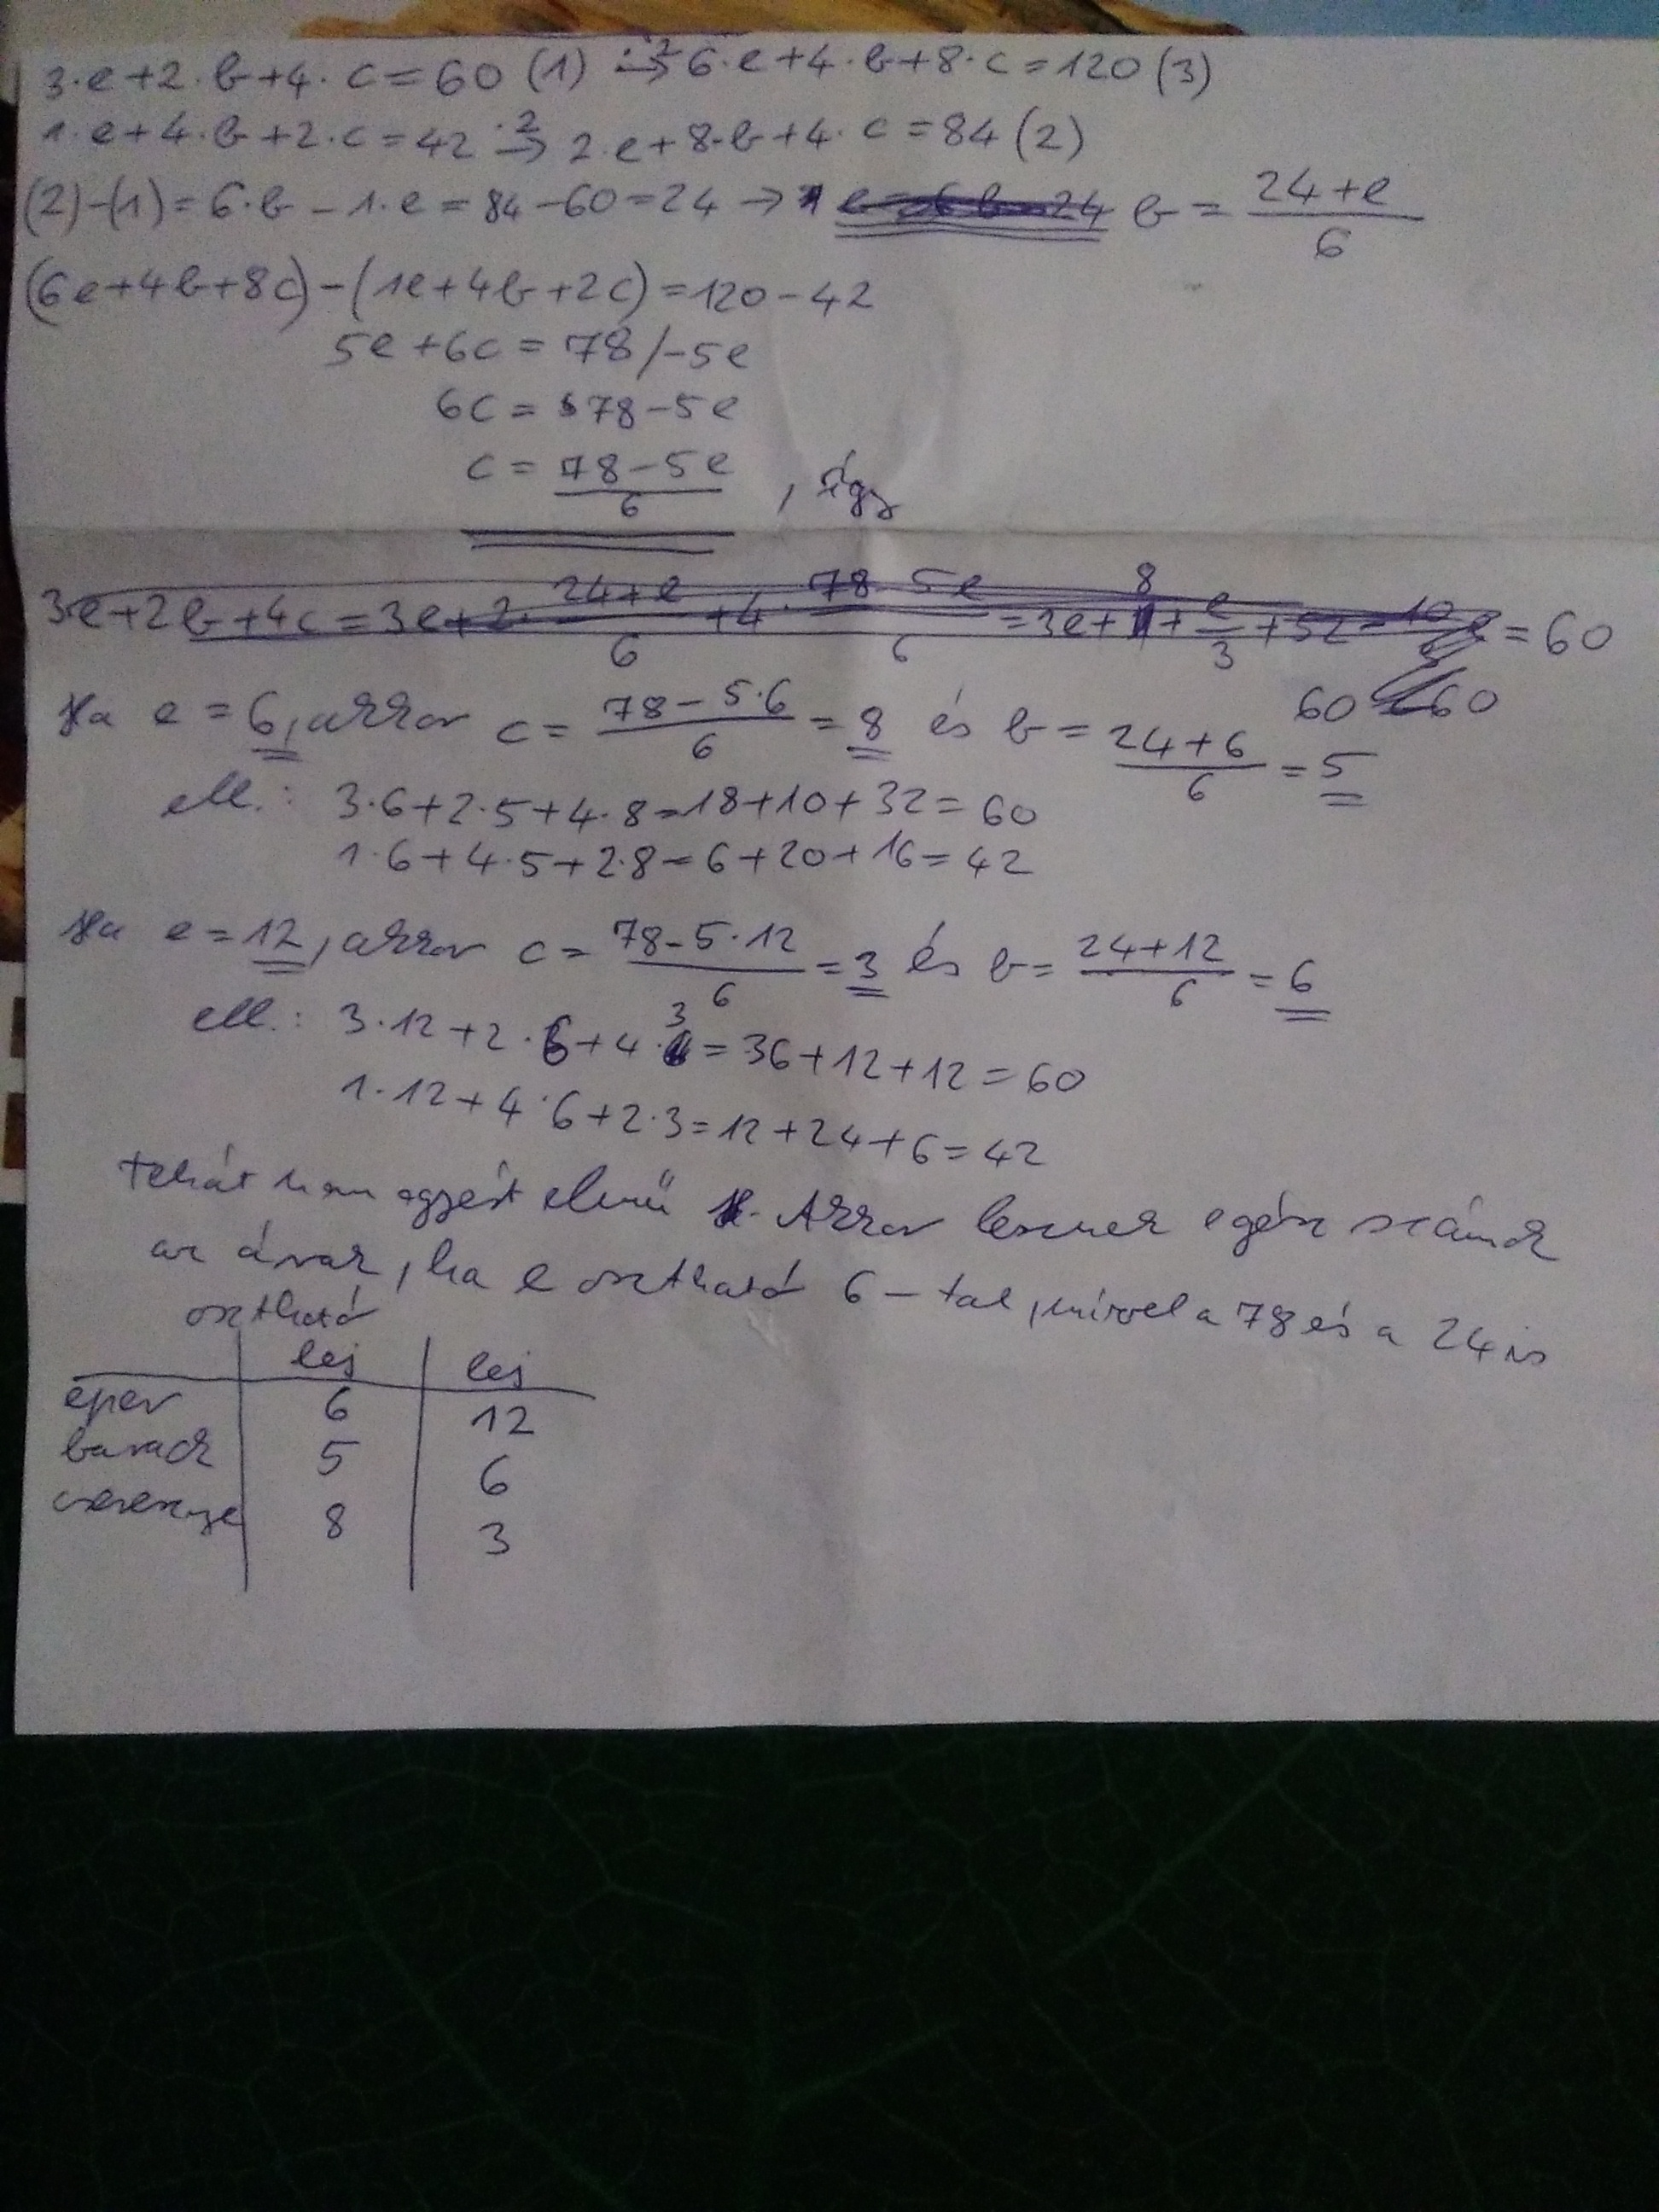 3·e+2·b+4·c=60 (1) ·2→ 6·e+4·b+8·c=120 (3)
1·e+4·b+2·c=42 ·2→ 2·e+8·b+4·c=84 (2)
(2)-(1)=6·b-1·e=84-60=24 → b=(24+e)/6
(6e+4b+8c)-(1e+4b+2c)=120-42
5e+6c=78/-5e
6c=78-5e
c=(78-5e)/6, így
3e+2b+4c=3e+2·(24+e)/6+4·(78-5e)/6=3e+8+e/3+52-=60
60 60
Ha e=6, akkor c=(78-5·6)/6=8 és b=(24+6)/6=5
ell.: 3·6+2·5+4·8=18+10+32=60
1·6+4·5+2·8=6+20+16=42
Ha e=12, akkor c=(78-5·12)/6=3 és b=(24+12)/6=6
ell.: 3·12+2·6+4·3=36+12+12=60
1·12+4·6+2·3=12+24+6=42
tehát nem egyértelmű. Akkor lesznek egész számok
az árak, ha e osztható 6-tal, mivel a 78 és a 24 is
osztható
lej lej
eper 6 12
barack 5 6
cseresznye 8 3